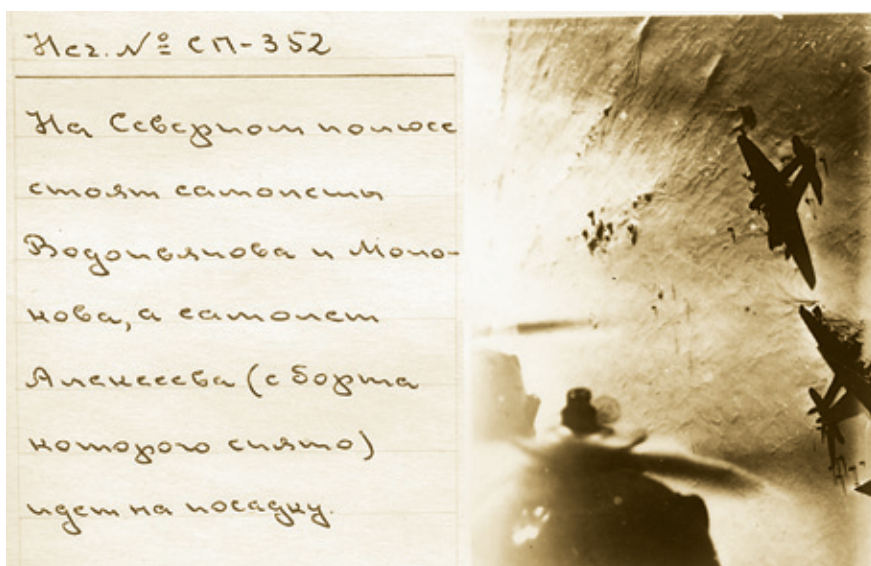 Нег. № СП-352
На Северном полюсе
стоят самолеты
Водопьянова и Моло-
кова, а самолет
Алексеева (с борта
которого снято)
идет на посадку.